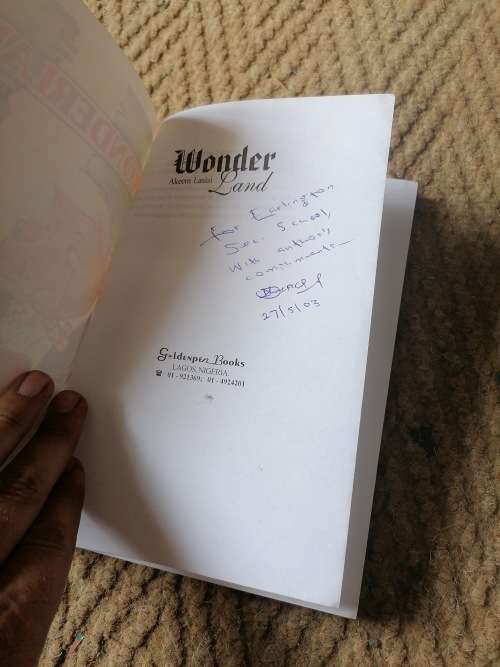 WONDERLAND
Wonder
Akeem Lasisi
Land
For Earlington
Sec. School,
With author's
compliments
27/5/03
Goldenpen Books
LAGOS, NIGERIA.
☎ 01 - 921369; 01 - 4924201